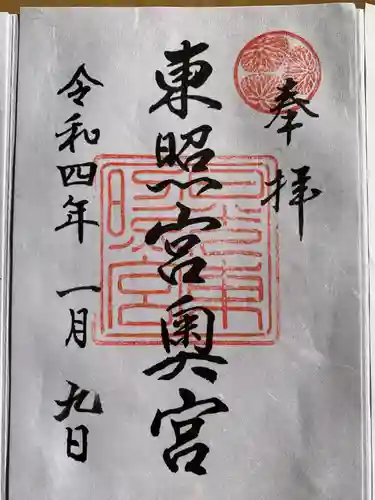 奉拝
東照宮奥宮
令和四年一月九日